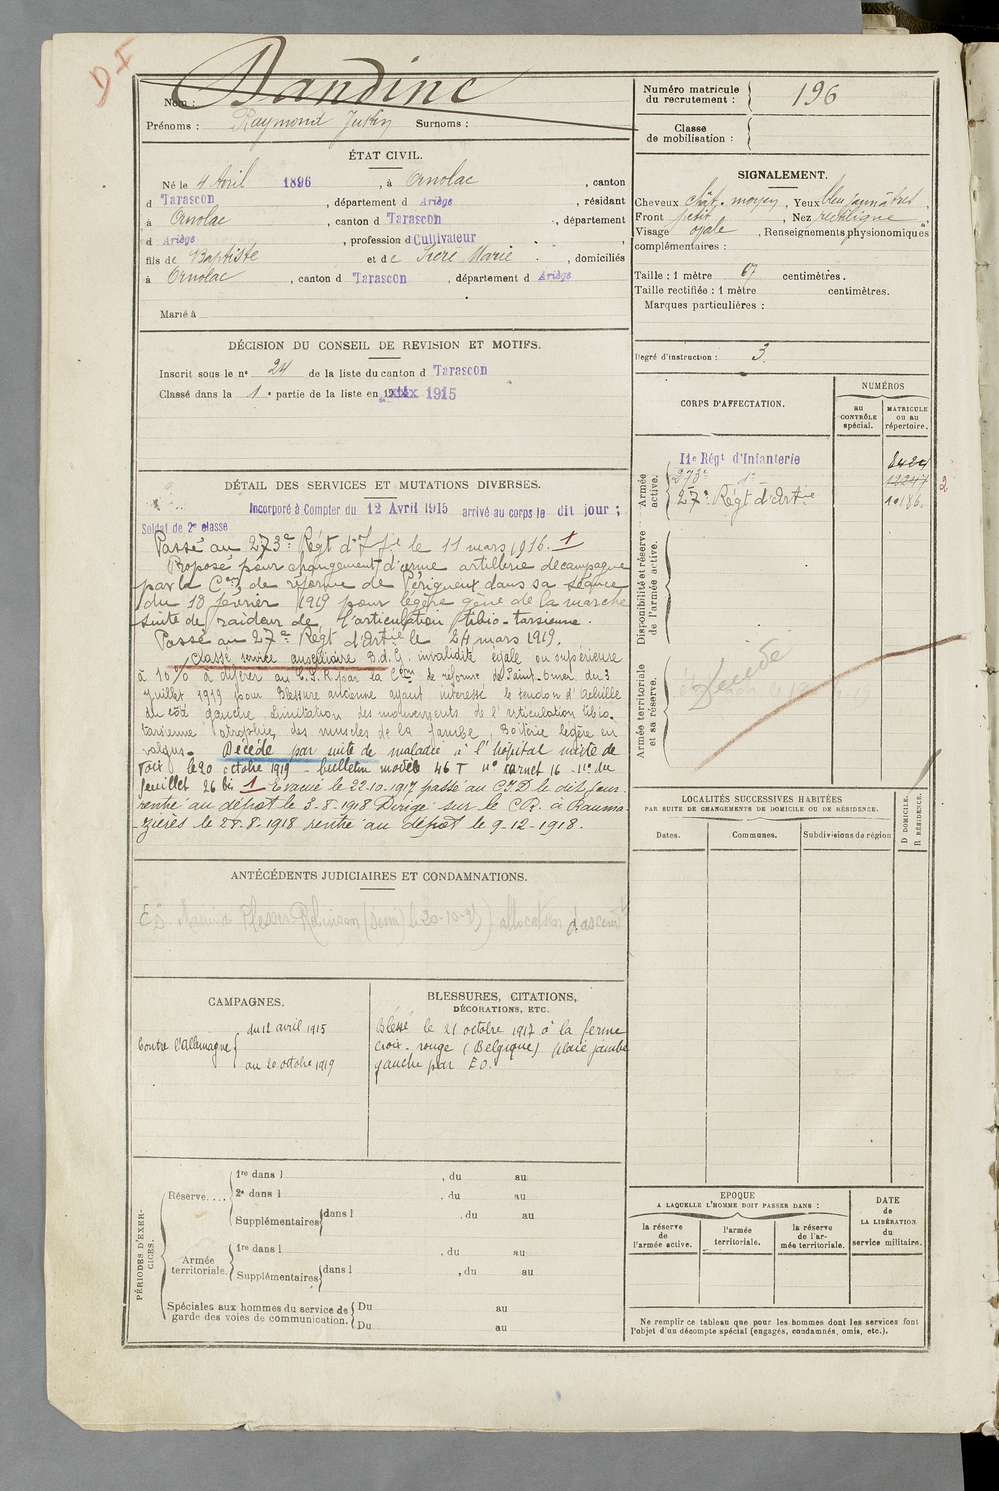 DF
Nom : Dandine
Prénoms : Raymond Surnoms :
Numéro matricule du recrutement : 196
Classe de mobilisation :
ÉTAT CIVIL.
Né le 4 Avril 1896, à Ornolac, canton
d Tarascon, département d Ariège, résidant
à Ornolac, canton d Tarascon, département
d Ariège, profession d Cultivateur
fils de Baptiste et de Marie, domiciliés
à Ornolac, canton d Tarascon, département d Ariège
Marié à
SIGNALEMENT.
Cheveux chât. moyen, Yeux bleu jaunâtres,
Front petit, Nez rectiligne
Visage ovale, Renseignements physionomiques
complémentaires :
Taille : 1 mètre 67 centimètres.
Taille rectifiée : 1 mètre centimètres.
Marques particulières :
Degré d'instruction : 3.
DÉCISION DU CONSEIL DE REVISION ET MOTIFS.
Inscrit sous le nº 24 de la liste du canton d Tarascon
Classé dans la 1e partie de la liste en 1915
DÉTAIL DES SERVICES ET MUTATIONS DIVERSES.
Incorporé à Compter du 12 Avril 1915 arrivé au corps le dit jour ;
Soldat de 2e classe
Passé au 273e Régt d'Ifie le 11 mars 1916. 1
Proposé pour changement d'arme artillerie de campagne
par la Con de réforme de Périgueux dans sa séance
du 18 février 1919 pour légère gêne de la marche
suite de raideur de l'articulation tibio-tarsienne.
Passé au 27e Régt d'Artie le 24 mars 1919.
Classé service auxiliaire B.d.G. invalidité égale ou supérieure
à 10 % à différer au C.S.R. par la Con de réforme de Saint-Omer du 3
Juillet 1919 pour Blessure ancienne ayant intéressé le tendon d'Achille
du côté gauche, limitation des mouvements de l'articulation tibio-
tarsienne atrophie des muscles de la jambe, Boiterie légère en
valgus. Décédé par suite de maladie à l'hôpital mixte de
Foix le 20 octobre 1919 - bulletin modèle 46 T nº carnet 16 - nº du
feuillet 26 bis 1 Evacué le 22.10.1917 passé au C.I.D le dit jour
rentré au dépôt le 3-8-1918 Dirigé sur le CR. à
le 28-8-1918 rentré au dépôt le 9-12-1918.
CORPS D'AFFECTATION.
NUMÉROS
au CONTRÔLE spécial.
MATRICULE ou au répertoire.
Armée active.
11e Régt d'Infanterie 8424
273e dº 12247 2
27e Régt d'Artie 10186.
Disponibilité et réserve de l'armée active.
Armée territoriale et sa réserve.
LOCALITÉS SUCCESSIVES HABITÉES
PAR SUITE DE CHANGEMENTS DE DOMICILE OU DE RÉSIDENCE.
Dates. Communes. Subdivisions de région
D DOMICILE. R RÉSIDENCE.
ANTÉCÉDENTS JUDICIAIRES ET CONDAMNATIONS.
Plessis-Robinson (Seine) allocation d'ascendt
CAMPAGNES.
Contre l'Allemagne
du 12 avril 1915
au 20 octobre 1919
BLESSURES, CITATIONS,
DÉCORATIONS, ETC.
Blessé le 21 octobre 1917 à la ferme
croix-rouge (Belgique) plaie jambe
gauche par E.O.
PÉRIODES D'EXERCICES.
Réserve.... 1re dans l , du au
2e dans l , du au
Supplémentaires dans l , du au
Armée territoriale. 1re dans l , du au
Supplémentaires dans l , du au
Spéciales aux hommes du service de garde des voies de communication. Du au
Du au
EPOQUE
A LAQUELLE L'HOMME DOIT PASSER DANS :
la réserve de l'armée active.
l'armée territoriale.
la réserve de l'armée territoriale.
DATE de LA LIBÉRATION du service militaire.
Ne remplir ce tableau que pour les hommes dont les services font
l'objet d'un décompte spécial (engagés, condamnés, omis, etc.).